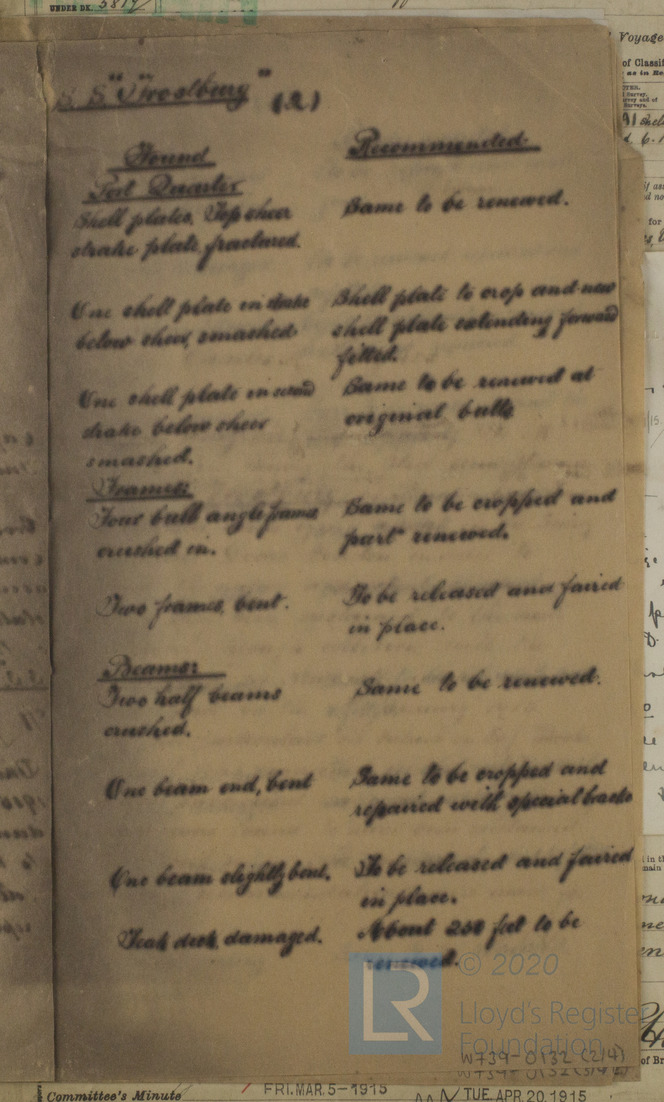 UNDER DK. 5879
Voyage
of Classif
as in Re
S. S. "Vroolburg" (2)
Found
Recommended.
Port Quarter
Shell plates, Top sheer
strake plate, fractured.
Same to be renewed.
One shell plate in strake
below sheer, smashed.
Shell plate to crop and new
shell plate extending forward
fitted.
One shell plate in second
strake below sheer
smashed.
Same to be renewed at
original butts
Frames:
Four bulb angle frames
crushed in.
Same to be cropped and
part renewed.
Two frames, bent.
To be released and faired
in place.
Beams:
Two half beams
crushed.
Same to be renewed.
One beam end, bent
Same to be cropped and
repaired with special bracks
One beam slightly bent.
To be released and faired
in place.
Teak deck, damaged.
About 250 feet to be
renewed.
LR
© 2020
Lloyd's Register
Foundation
W739-0132 (2/4)
Committee's Minute
FRI. MAR. 5-1915
TUE. APR. 20. 1915
of Br